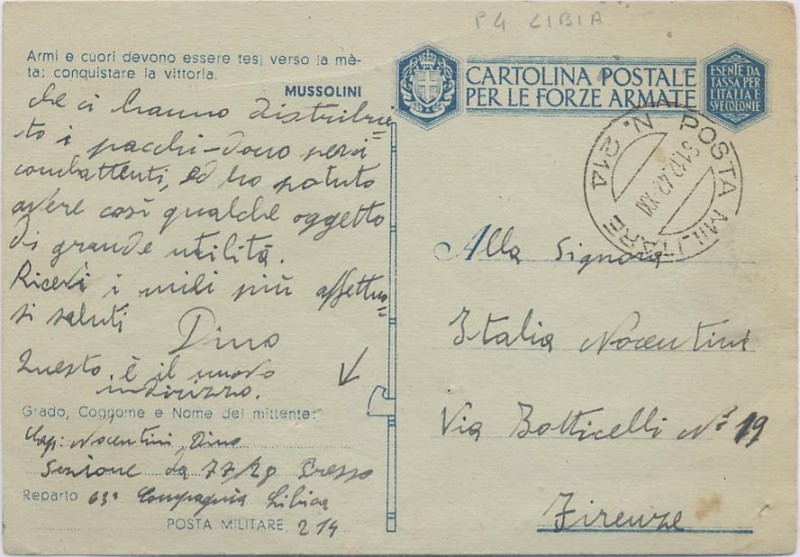 P4 LIBIA
Armi e cuori devono essere tesi verso la mè-
ta: conquistare la vittoria.
MUSSOLINI
che ci hanno distribui=
to i pacchi-dono per i
combattenti, ed ho potuto
avere così qualche oggetto
di grande utilità.
Ricevi i miei più affettuo=
si saluti
Dino
Questo è il nuovo
indirizzo.
Grado, Cognome e Nome del mittente:
Cap: Nocentini Dino
Sezione da 77/28 Presso
Reparto 63ª Compagnia Libica
POSTA MILITARE 214
CARTOLINA POSTALE
PER LE FORZE ARMATE
ESENTE DA
TASSA PER
L'ITALIA E
SVE COLONIE
POSTA MILITARE N. 214
XXI
Alla Signora
Italia Nocentini
Via Botticelli Nº 19
Firenze